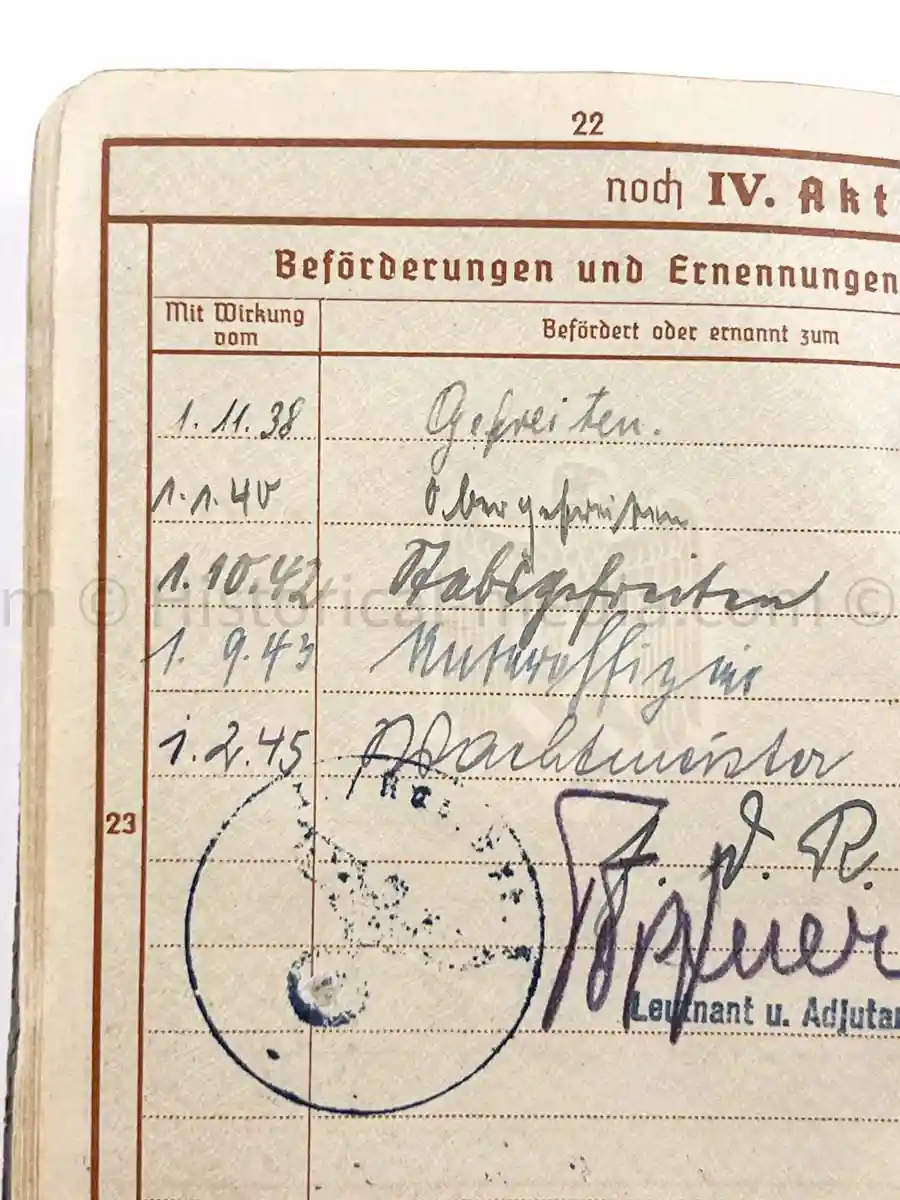 22
noch IV. Akt
Beförderungen und Ernennungen
Mit Wirkung vom
Befördert oder ernannt zum
1.11.38 Gefreiten.
1.1.40 Obergefreiten
1.10.42 Stabsgefreiten
1.9.43 Unteroffizier
1.2.45 Wachtmeister
23
F. d. R.
Leutnant u. Adjuta
m © Historical-media.com ©